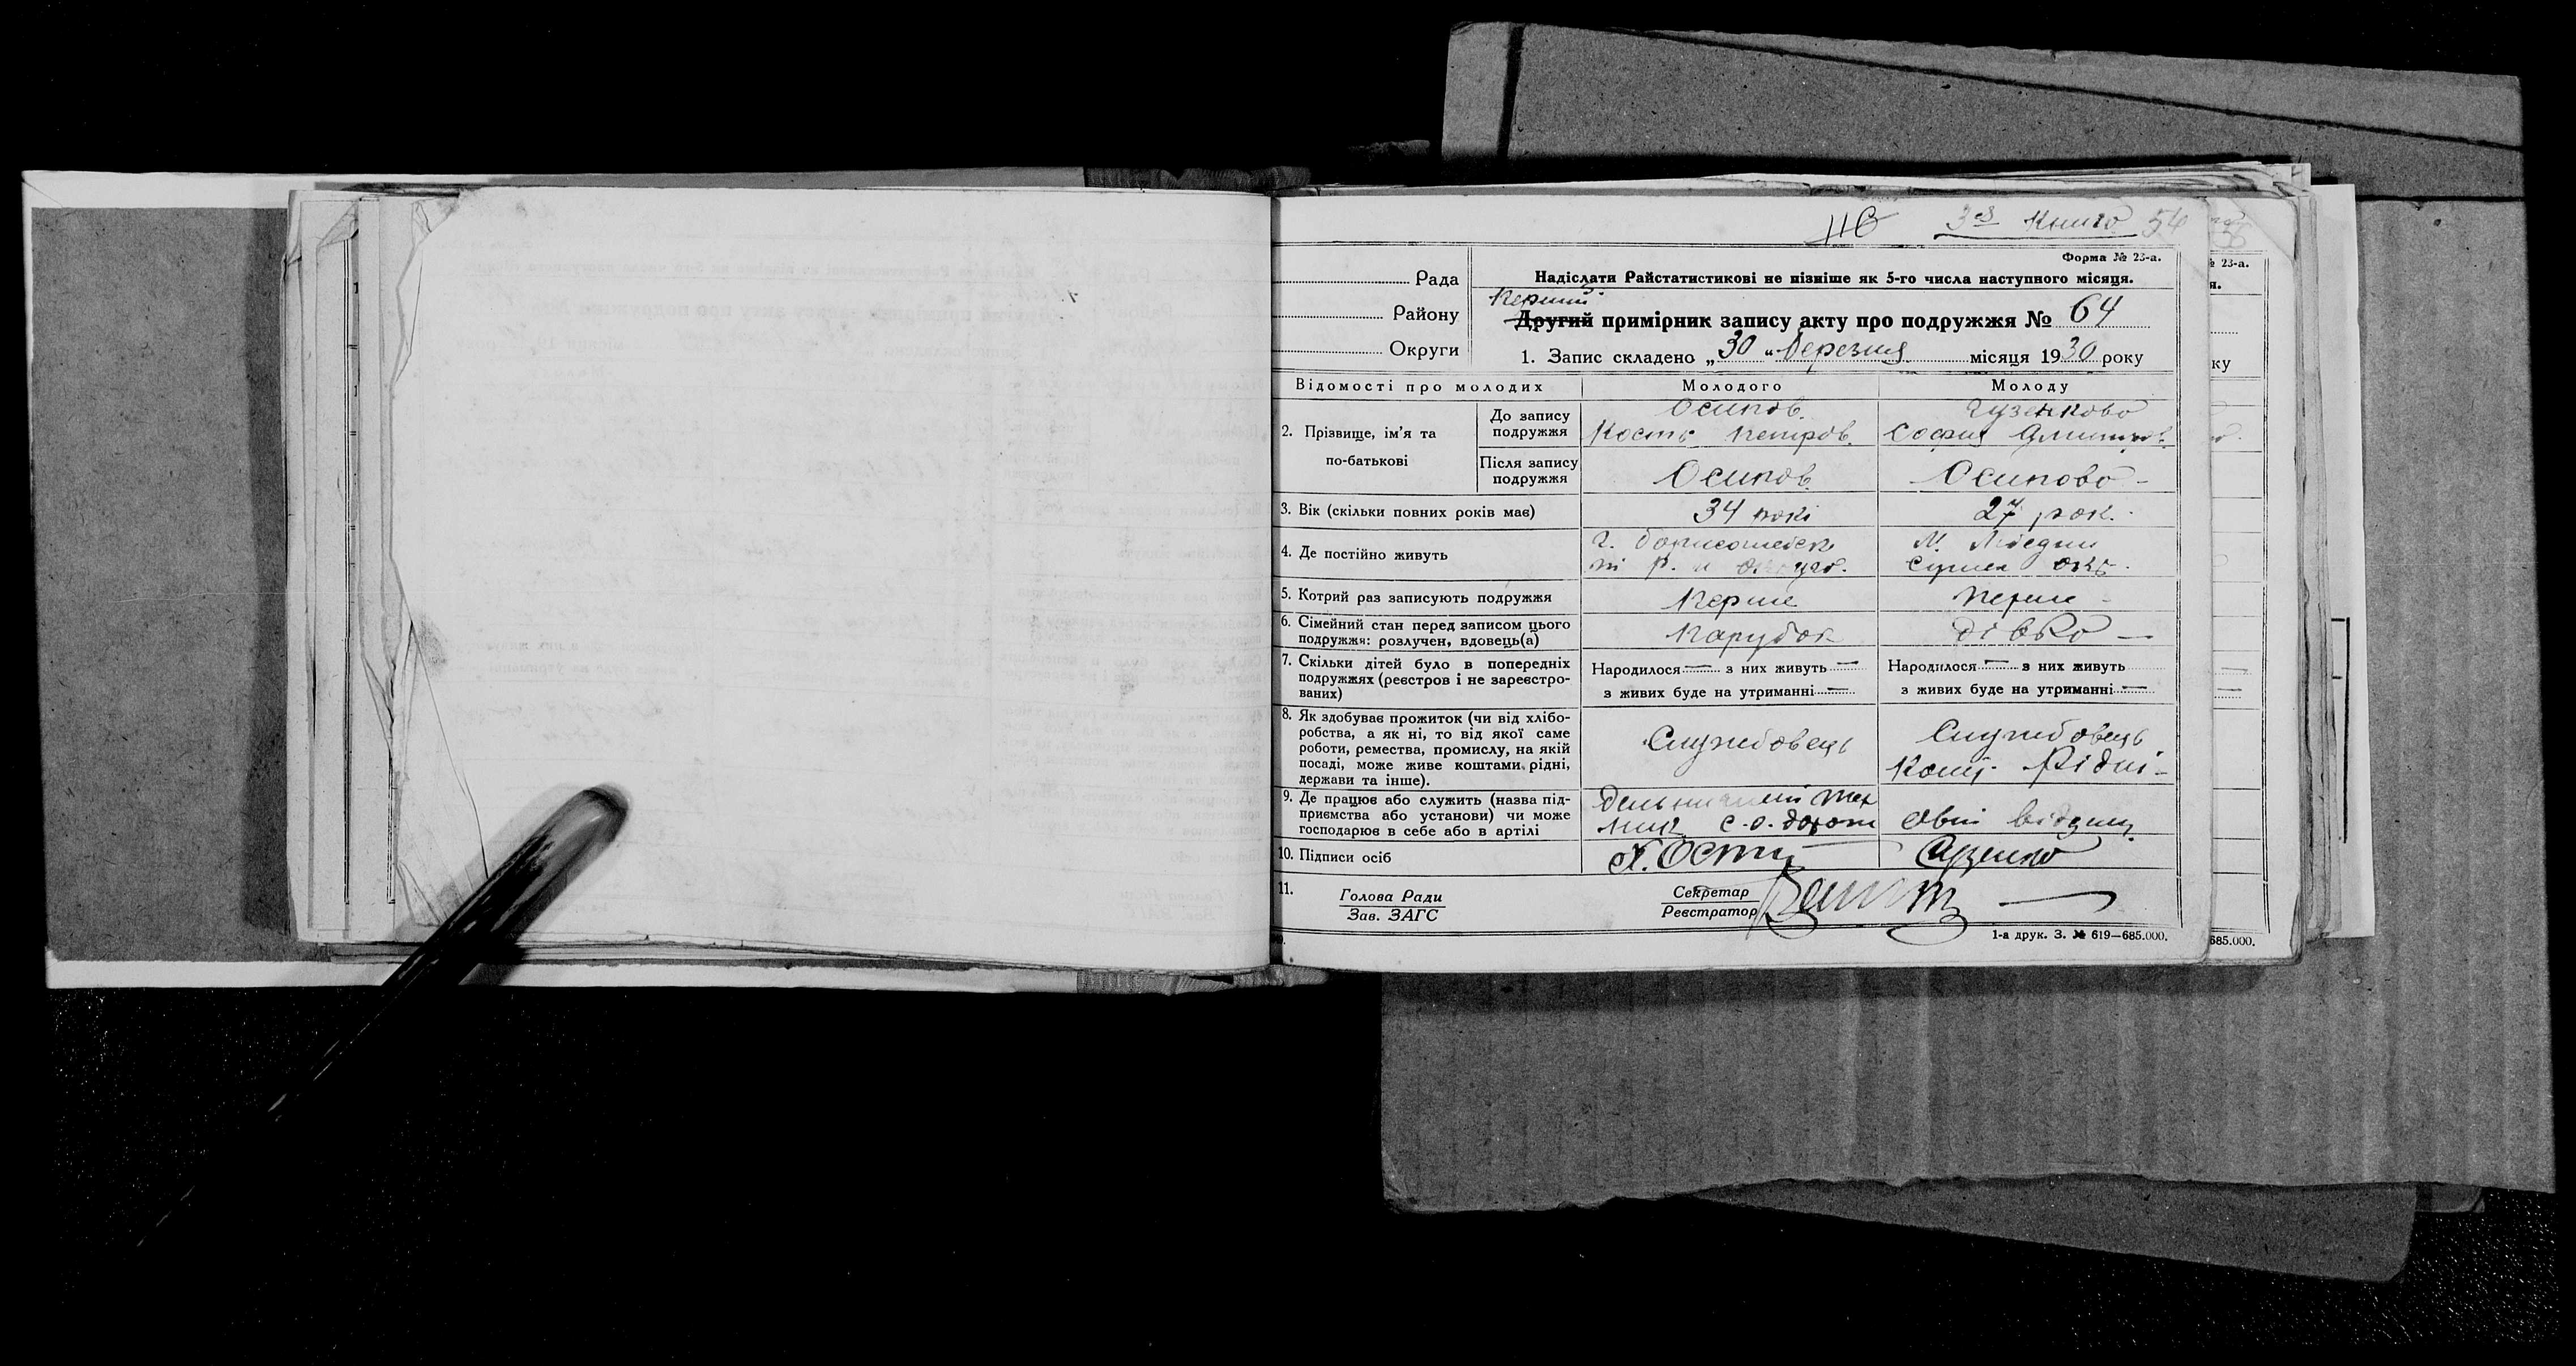 116 3я книга 54
Форма № 23-а.
Рада
Району
Округи
Надіслати Райстатистикові не пізніше як 5-го числа наступного місяця.
Перший
Другий примірник запису акту про подружжя № 64
1. Запис складено „30“ березня місяця 1930 року
Відомості про молодих Молодого Молоду
2. Прізвище, ім'я та по-батькові
До запису подружжя
Осипов Кость Петров.
Гузенкова София
Після запису подружжя
Осипов
Осипова
3. Вік (скільки повних років має) 34 рокі 27 рок.
4. Де постійно живуть
г. р. и округ.
М. Лебедин Сумск окр.
5. Котрий раз записують подружжя Перше Перше
6. Сімейний стан перед записом цього
подружжя: розлучен, вдовець(а)
Парубок дівка
7. Скільки дітей було в попередніх
подружжях (реєстров і не зареєстро-
ваних)
Народилося — з них живуть —
з живих буде на утриманні —
Народилося — з них живуть
з живих буде на утриманні —
8. Як здобуває прожиток (чи від хлібо-
робства, а як ні, то від якої саме
роботи, ремества, промислу, на якій
посаді, може живе коштами рідні,
держави та інше).
Службовець
Службовець
Кошт. Рідні
9. Де працює або служить (назва під-
приємства або установи) чи може
господарює в себе або в артілі
10. Підписи осіб
11.
Голова Ради
Зав. ЗАГС
Секретар
Реєстратор
1-а друк. З. № 619—685.000.
№ 23-а.
я.
ку
685.000.